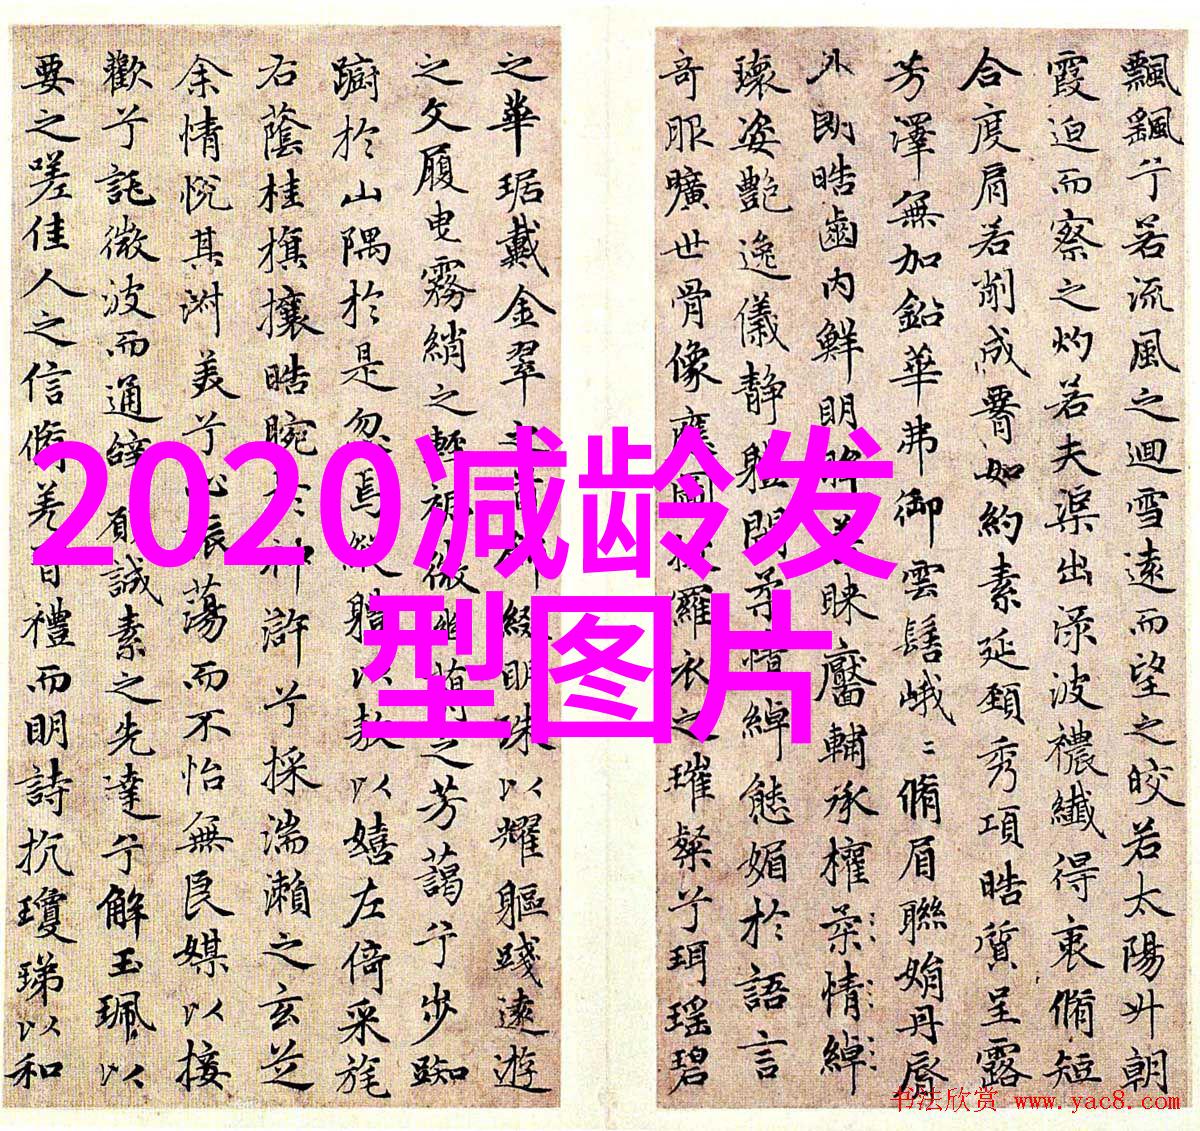 飄飖兮若流風之迴雪遠而望之皎若太陽升朝
霞迫而察之灼若夫渠出淥波襛纖得衷脩短
合度肩若削成腰如約素延頸秀項皓質呈露
芳澤無加鉛華弗御雲髻峨〻脩眉聯娟丹脣
外朗皓齒內鮮明眸善睞靨輔承權柔情綽
瓌姿艷逸儀靜體閑柔情綽態媚於語言
奇服曠世骨像應圖披羅衣之璀粲兮珥瑤碧
之華琚戴金翠之首飾綴明珠以耀軀踐遠遊
之文履曳霧綃之輕裾微幽蘭之芳藹兮步踟
躕於山隅於是忽焉縱體以敖以嬉左倚采旄
右蔭桂旗攘皓腕於神滸兮採湍瀨之玄芝
余情悅其淑美兮心振蕩而不怡無良媒以接
歡兮託微波而通辭願誠素之先達兮解玉珮以
要之嗟佳人之信脩羌習禮而明詩抗瓊珶以和
2020减龄发
型图片
书法欣赏 www.yac8.com